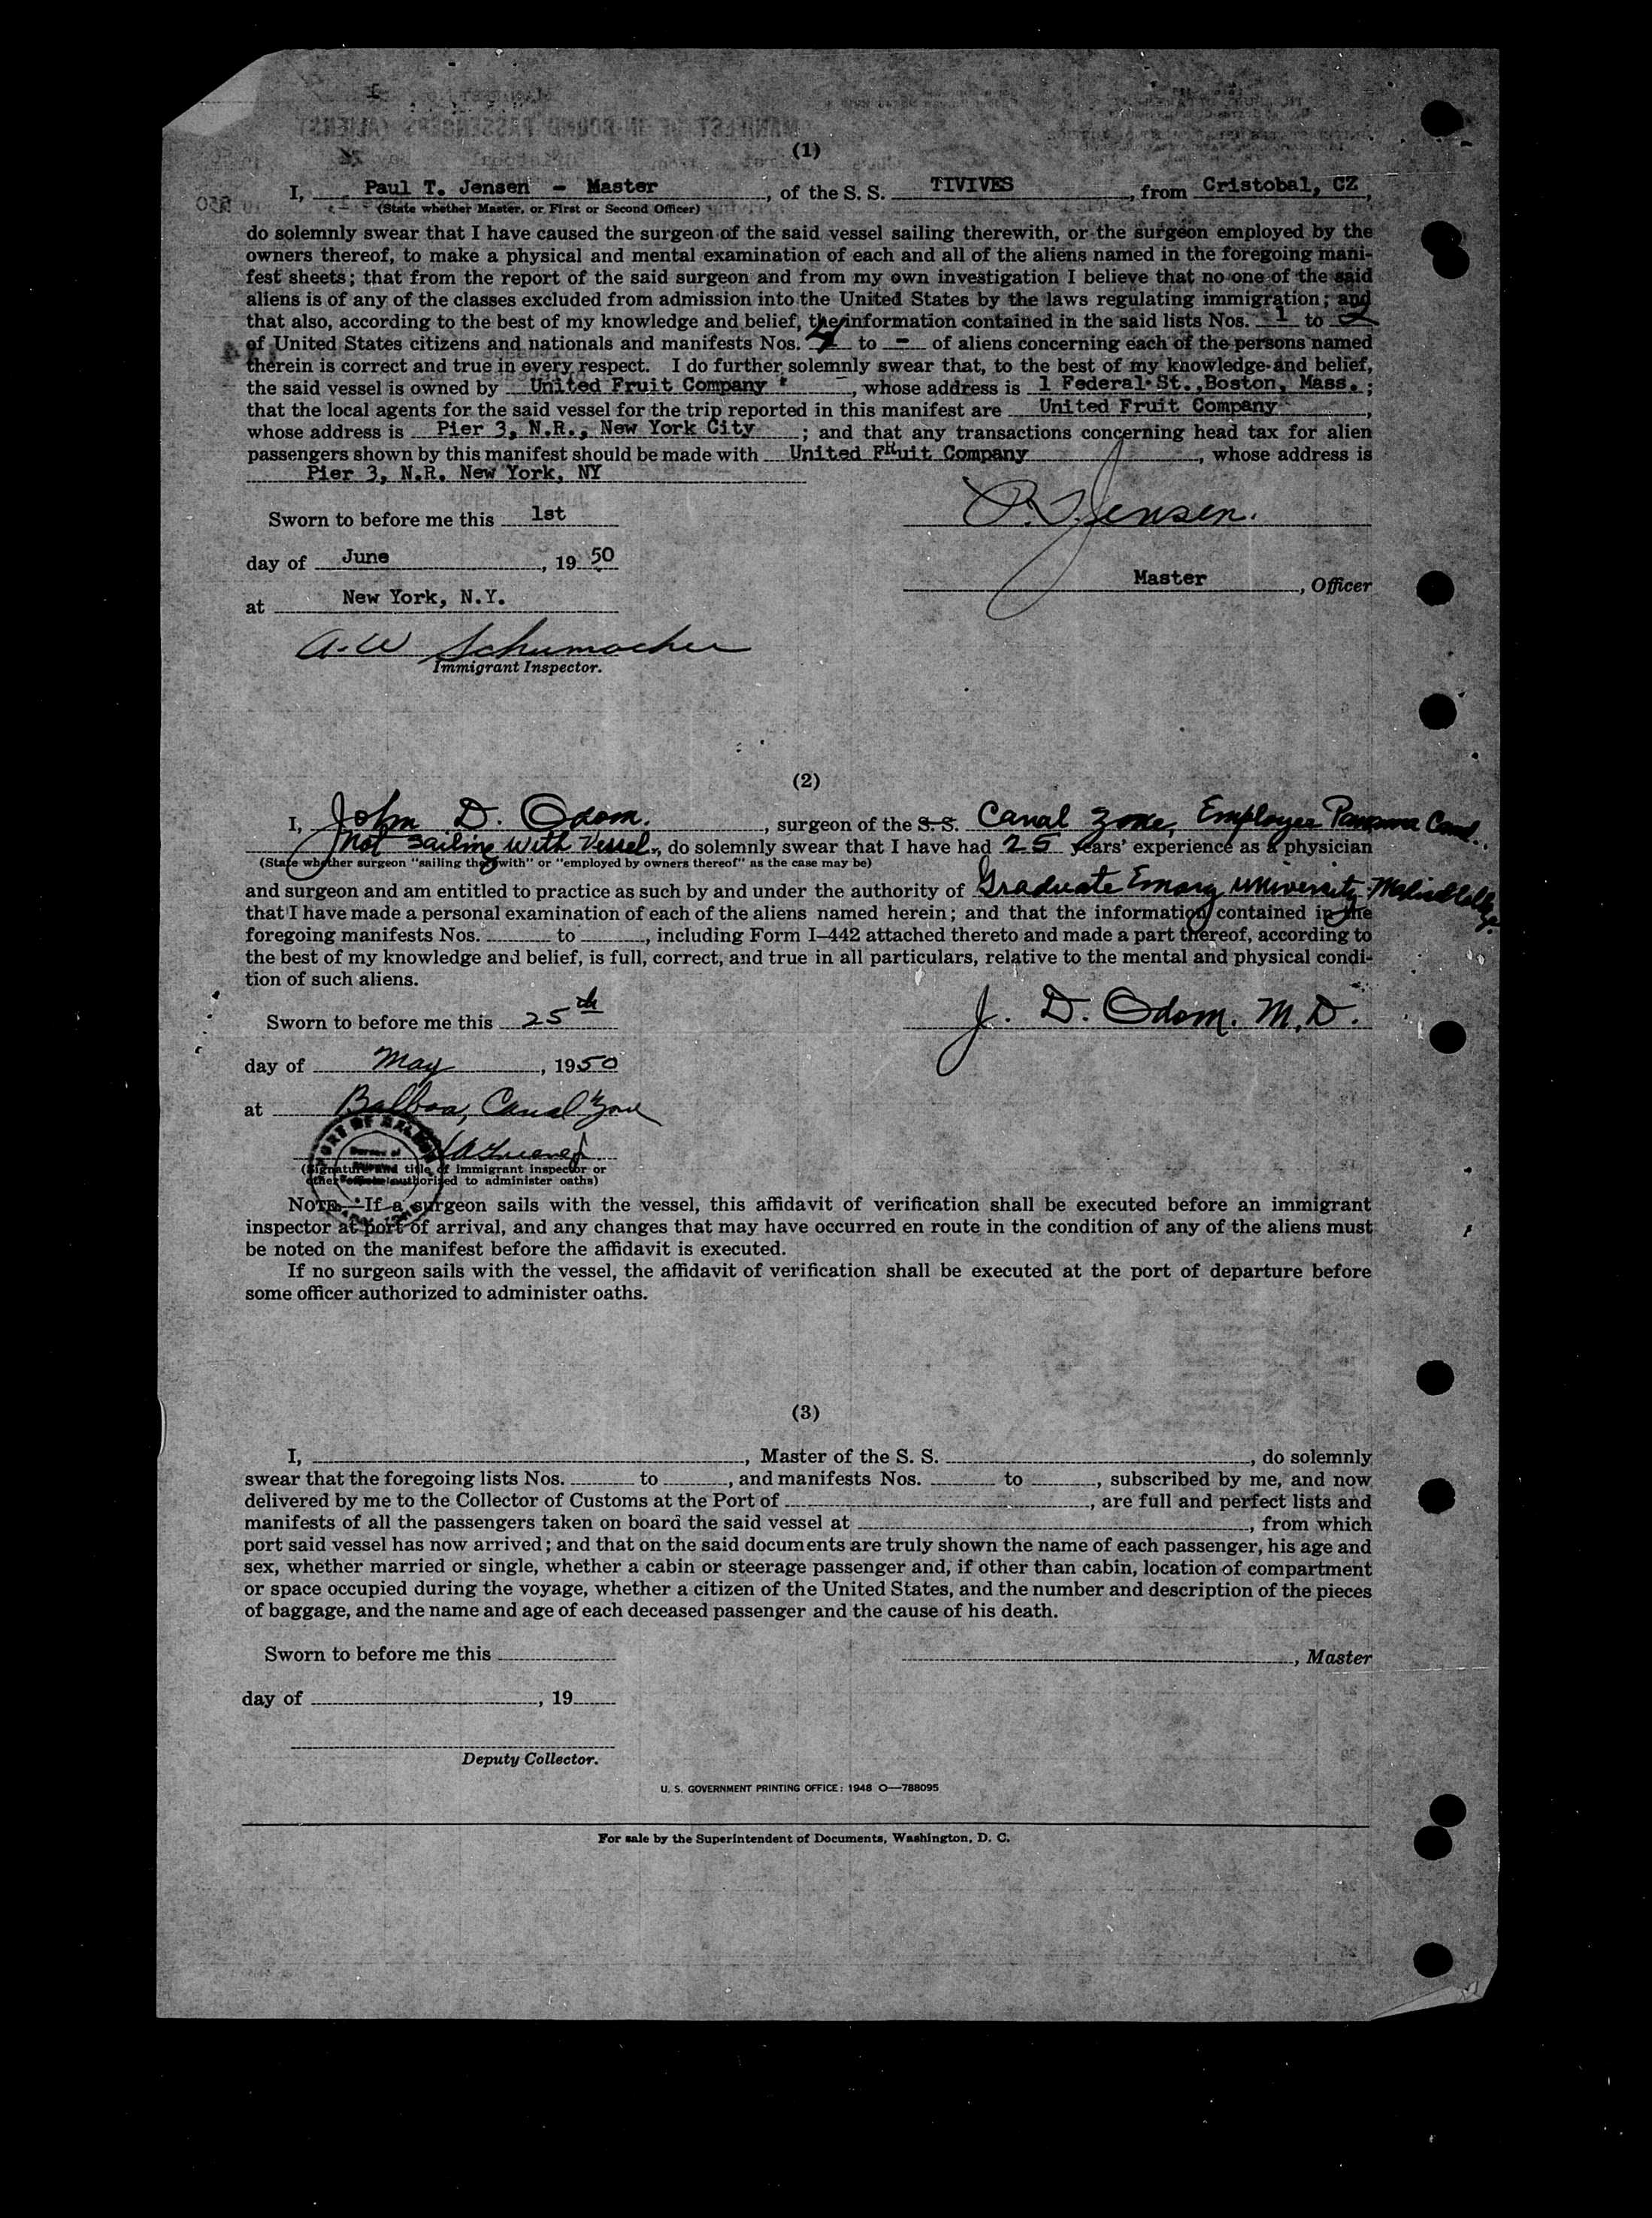 (1)
I, Paul T. Jensen - Master, of the S. S. TIVIVES, from Cristobal, CZ,
(State whether Master, or First or Second Officer)
do solemnly swear that I have caused the surgeon of the said vessel sailing therewith, or the surgeon employed by the
owners thereof, to make a physical and mental examination of each and all of the aliens named in the foregoing mani-
fest sheets; that from the report of the said surgeon and from my own investigation I believe that no one of the said
aliens is of any of the classes excluded from admission into the United States by the laws regulating immigration; and
that also, according to the best of my knowledge and belief, the information contained in the said lists Nos. 1 to 2
of United States citizens and nationals and manifests Nos. to - of aliens concerning each of the persons named
therein is correct and true in every respect. I do further solemnly swear that, to the best of my knowledge and belief,
the said vessel is owned by United Fruit Company, whose address is 1 Federal St., Boston, Mass.;
that the local agents for the said vessel for the trip reported in this manifest are United Fruit Company,
whose address is Pier 3, N.R., New York City; and that any transactions concerning head tax for alien
passengers shown by this manifest should be made with United FRuit Company, whose address is
Pier 3, N.R. New York, NY
P. T. Jensen.
Sworn to before me this 1st
day of June, 19 50
Master, Officer
at New York, N.Y.
A. W Schumacher
Immigrant Inspector.
(2)
I, John D. Odom., surgeon of the S. S. Canal Zone, Employee Panama Canal.
Not Sailing With Vessel, do solemnly swear that I have had 25 years' experience as a physician
(State whether surgeon "sailing therewith" or "employed by owners thereof" as the case may be)
and surgeon and am entitled to practice as such by and under the authority of Graduate Emory University
that I have made a personal examination of each of the aliens named herein; and that the information contained in the
foregoing manifests Nos. to , including Form I–442 attached thereto and made a part thereof, according to
the best of my knowledge and belief, is full, correct, and true in all particulars, relative to the mental and physical condi-
tion of such aliens.
J. D. Odom. M.D.
Sworn to before me this 25th
day of May, 1950
at Balboa, Canal Zone
(Signature and title of immigrant inspector or
other official authorized to administer oaths)
NOTE.—If a surgeon sails with the vessel, this affidavit of verification shall be executed before an immigrant
inspector at port of arrival, and any changes that may have occurred en route in the condition of any of the aliens must
be noted on the manifest before the affidavit is executed.
If no surgeon sails with the vessel, the affidavit of verification shall be executed at the port of departure before
some officer authorized to administer oaths.
(3)
I, , Master of the S. S. , do solemnly
swear that the foregoing lists Nos. to , and manifests Nos. to , subscribed by me, and now
delivered by me to the Collector of Customs at the Port of , are full and perfect lists and
manifests of all the passengers taken on board the said vessel at , from which
port said vessel has now arrived; and that on the said documents are truly shown the name of each passenger, his age and
sex, whether married or single, whether a cabin or steerage passenger and, if other than cabin, location of compartment
or space occupied during the voyage, whether a citizen of the United States, and the number and description of the pieces
of baggage, and the name and age of each deceased passenger and the cause of his death.
Sworn to before me this
, Master
day of , 19
Deputy Collector.
U. S. GOVERNMENT PRINTING OFFICE: 1948 O—788095
For sale by the Superintendent of Documents, Washington, D. C.